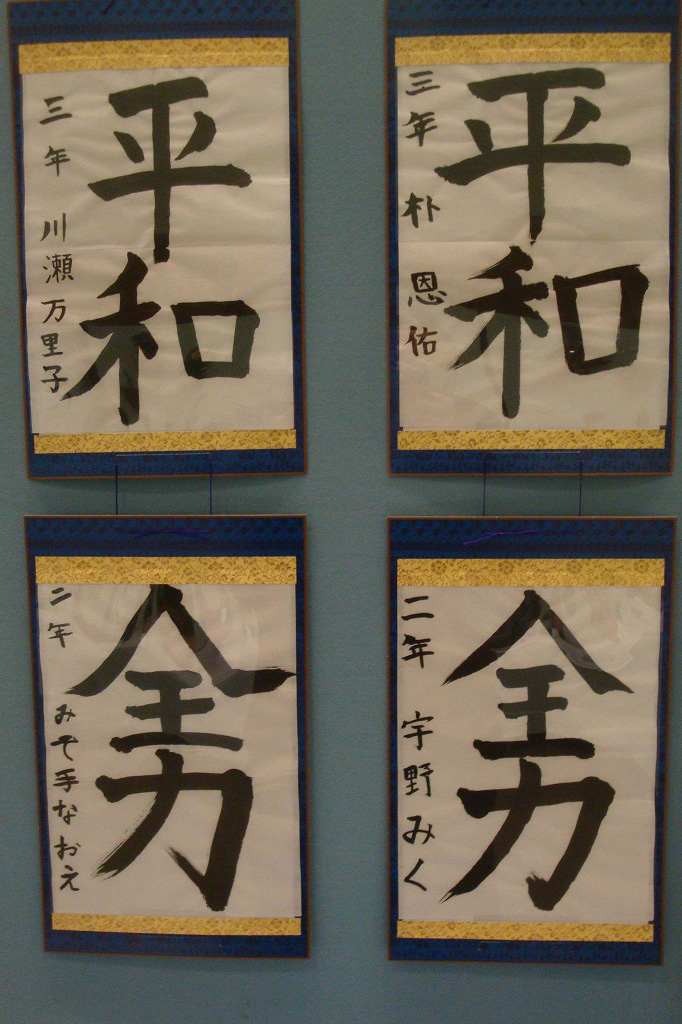 平和
三年 川瀬万里子
平和
三年 朴恩佑
全力
二年 みぞ手なおえ
全力
二年 宇野みく